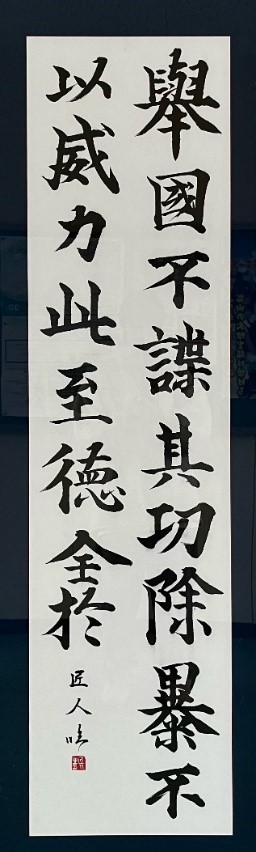 舉國不謀其功除暴不
以威力此至德全於
匠人